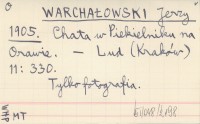 O WARCHAŁOWSKI Jerzy
1905. Chata w Piekielniku na
Orawie. — Lud (Kraków)
11: 330.
Tylko fotografia.
MT